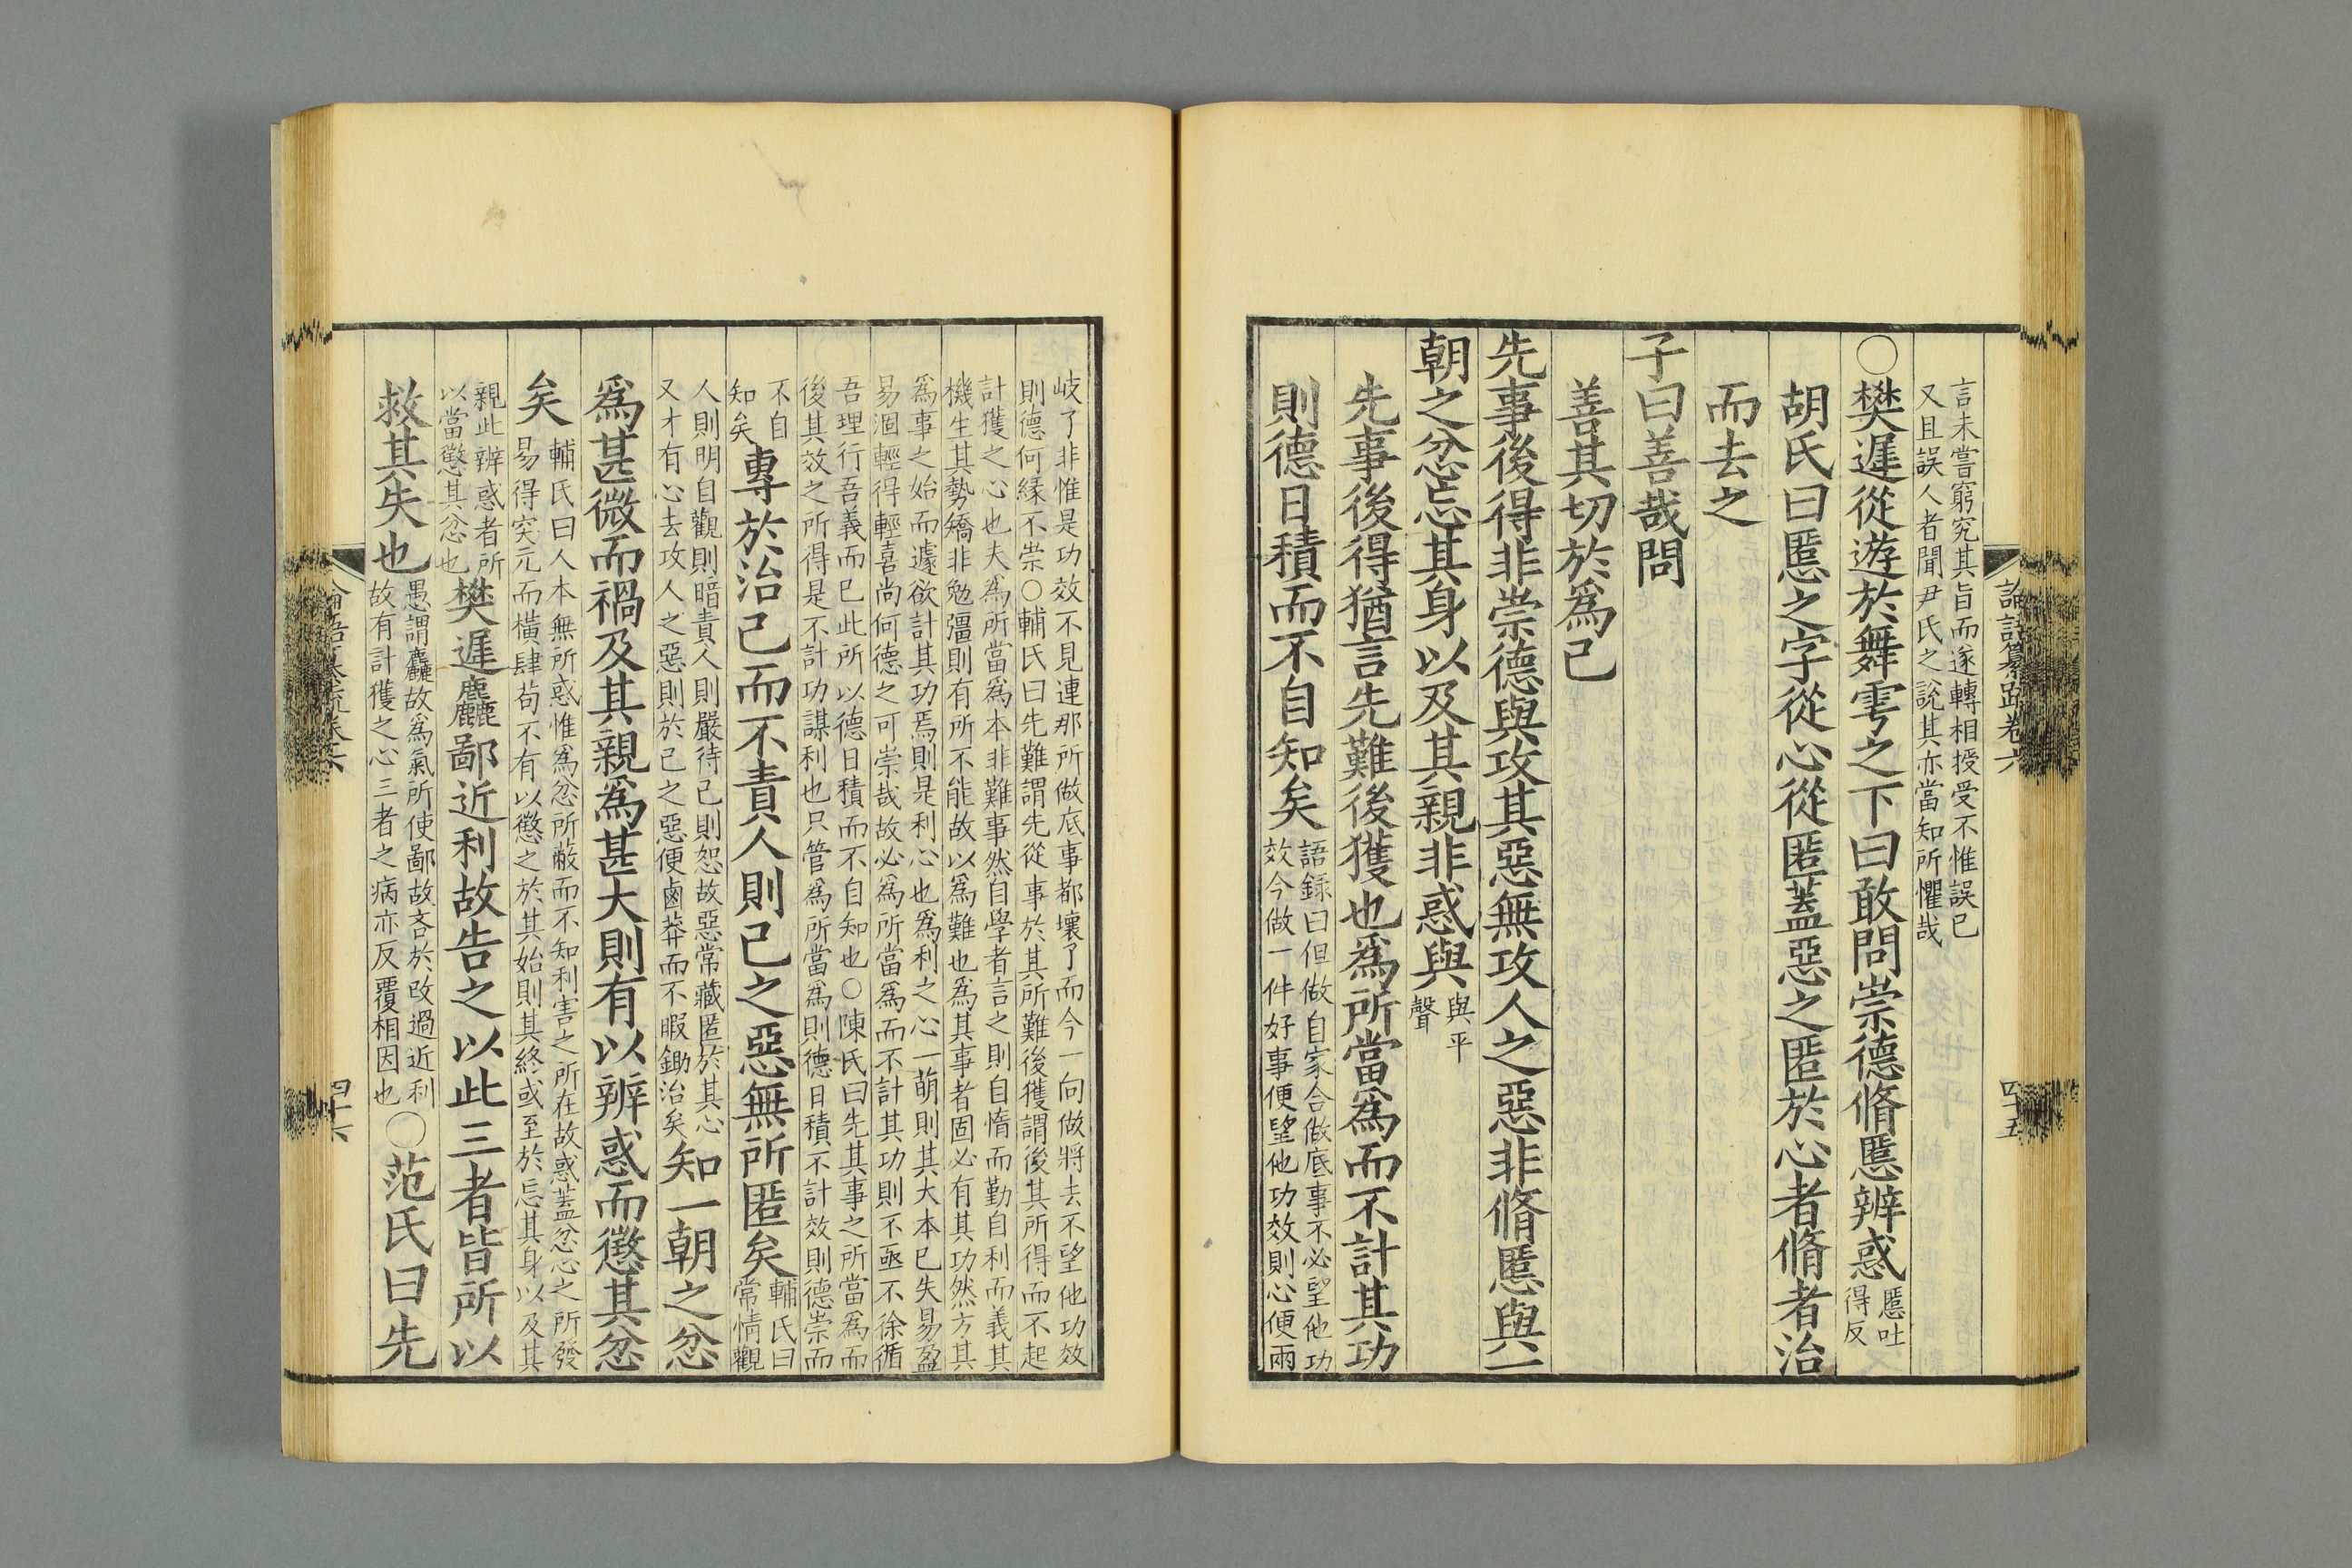 論語纂䟽卷六
四十五
言未嘗窮究其旨而遂轉相授受不惟誤己
又且誤人者聞尹氏之說其亦當知所懼哉
○樊遲從遊於舞雩之下曰敢問崇德脩慝辨惑慝吐得反
胡氏曰慝之字從心從匿蓋惡之匿於心者脩者治
而去之
子曰善哉問
善其切於爲己
先事後得非崇德與攻其惡無攻人之惡非脩慝與一
朝之忿忘其身以及其親非惑與與平聲
先事後得猶言先難後獲也爲所當爲而不計其功
則德日積而不自知矣
語錄曰但做自家合做底事不必望他功
效今做一件好事便望他功效則心便兩
岐了非惟是功效不見連那所做底事都壞了而今一向做將去不望他功效
則德何縁不崇○輔氏曰先難謂先從事於其所難後獲謂後其所得而不起
計獲之心也夫爲所當爲本非難事然自學者言之則自惰而勤自利而義其
機生其勢矯非勉彊則有所不能故以爲難也爲其事者固必有其功然方其
爲事之始而遽欲計其功焉則是利心也爲利之心一萌則其大本已失易盈
易涸輕得輕喜尚何德之可崇哉故必爲所當爲而不計其功則不亟不徐循
吾理行吾義而已此所以德日積而不自知也○陳氏曰先其事之所當爲而
後其效之所得是不計功謀利也只管爲所當爲則德日積不計效則德崇而
不自
知矣
專於治己而不責人則己之惡無所匿矣
輔氏曰
常情觀
人則明自觀則暗責人則嚴待己則恕故惡常藏匿於其心
又才有心去攻人之惡則於己之惡便鹵莽而不暇鋤治矣
知一朝之忿
爲甚微而禍及其親爲甚大則有以辨惑而懲其忿
矣
輔氏曰人本無所惑惟爲忿所蔽而不知利害之所在故惑蓋忿心之所發
易得突元而橫肆苟不有以懲之於其始則其終或至於忘其身以及其
親此辨惑者所
以當懲其忿也
樊遲麤鄙近利故告之以此三者皆所以
救其失也
愚謂麤故爲氣所使鄙故吝於改過近利
故有計獲之心三者之病亦反覆相因也
○范氏曰先
論語纂疏卷六
四十六